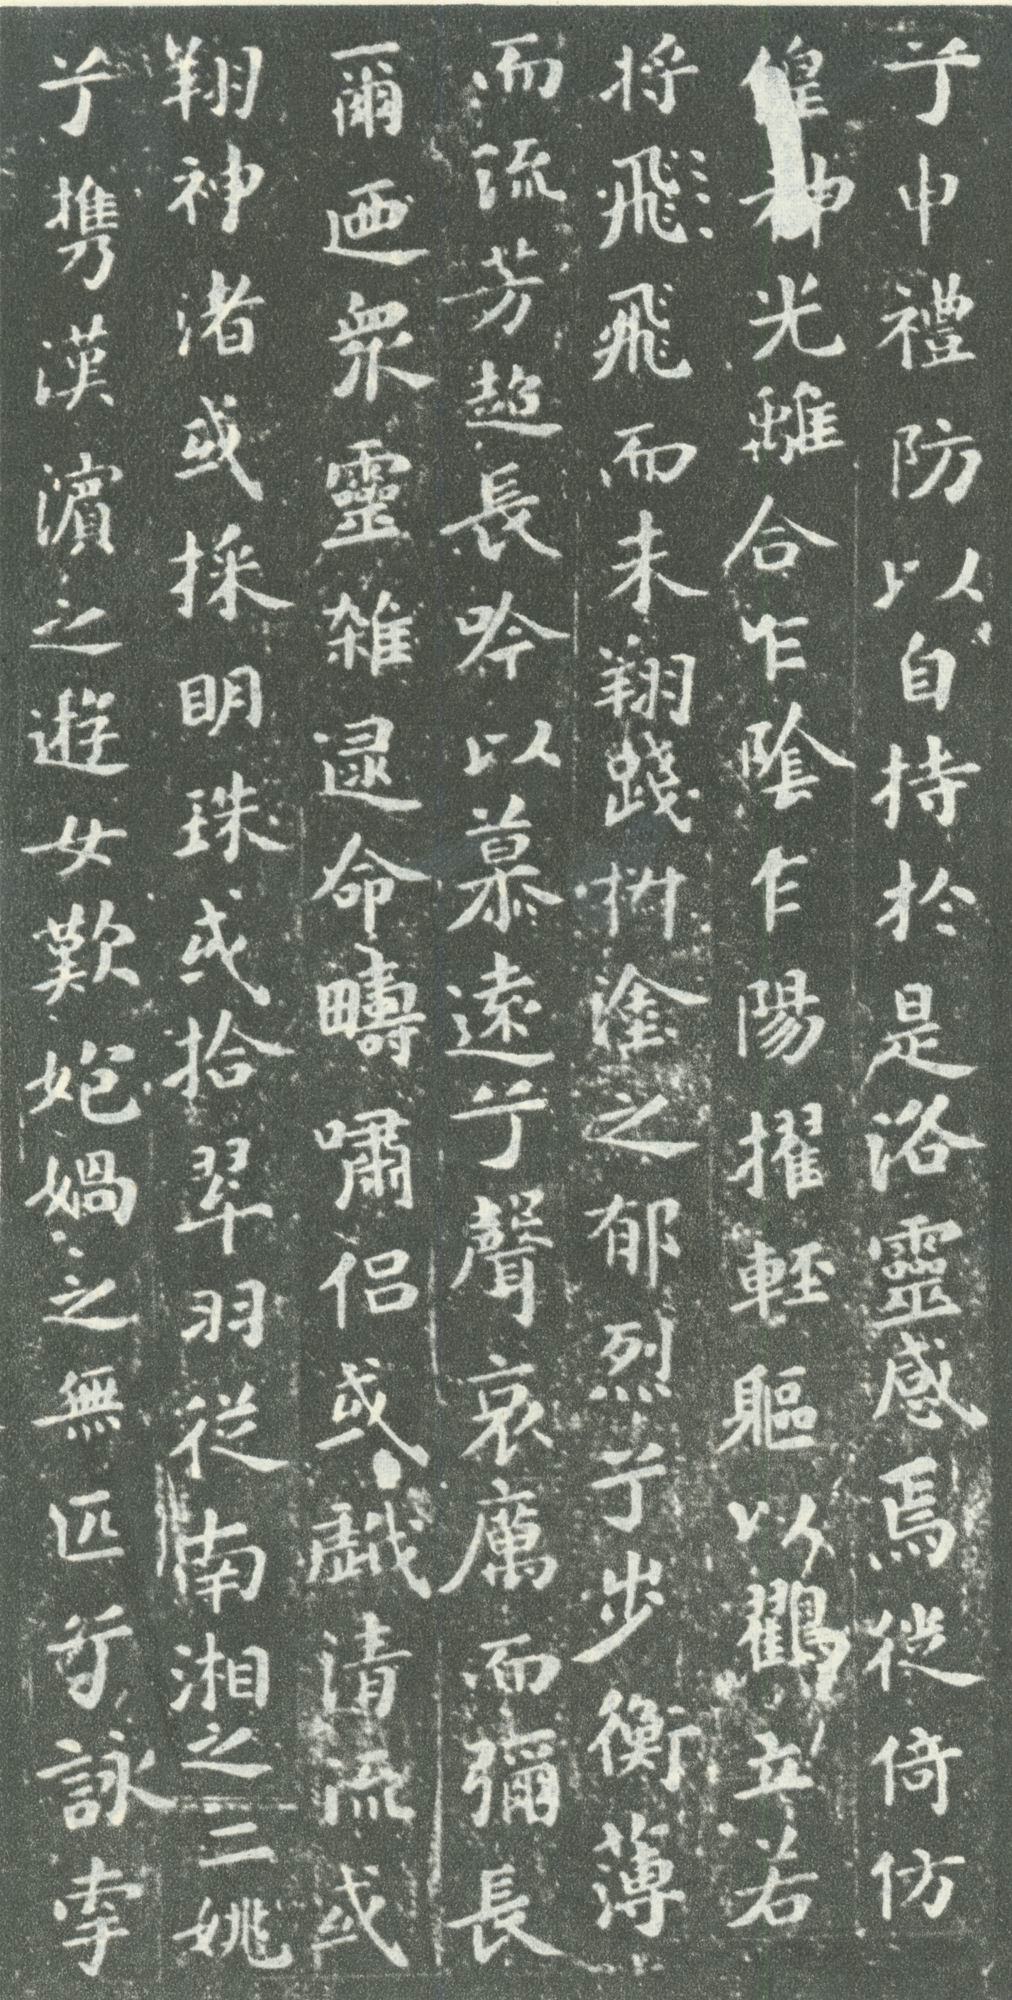 兮申禮防以自持於是洛靈感焉從倚仿
偟神光離合乍陰乍陽擢輕軀以鸖立若
将飛飛而未翔踐椒塗之郁烈兮步衡薄
而流芳超長吟以慕遠兮聲哀厲而彌長
爾迺衆靈雜遝命疇嘯侣或戲清流或
翔神渚或採明珠或拾翠羽從南湘之二姚
兮携漢濱之遊女歎㚿媧之無匹兮詠牽